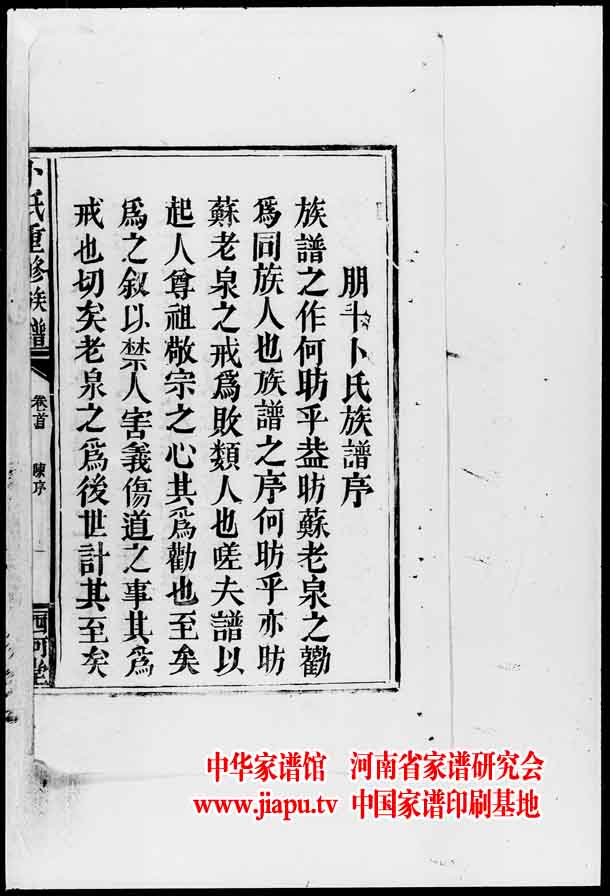 朋斗卜氏族譜序
族譜之作何昉乎葢昉蘇老泉之勸
爲同族人也族譜之序何昉乎亦昉
蘇老泉之戒爲敗類人也嗟夫譜以
起人尊祖敬宗之心其爲勸也至矣
爲之叙以禁人害義傷道之事其爲
戒也切矣老泉之爲後世計其至矣
卜氏重修族譜
卷首 陳序 一
西河堂
中华家谱馆 河南省家谱研究会
www.jiapu.tv 中国家谱印刷基地